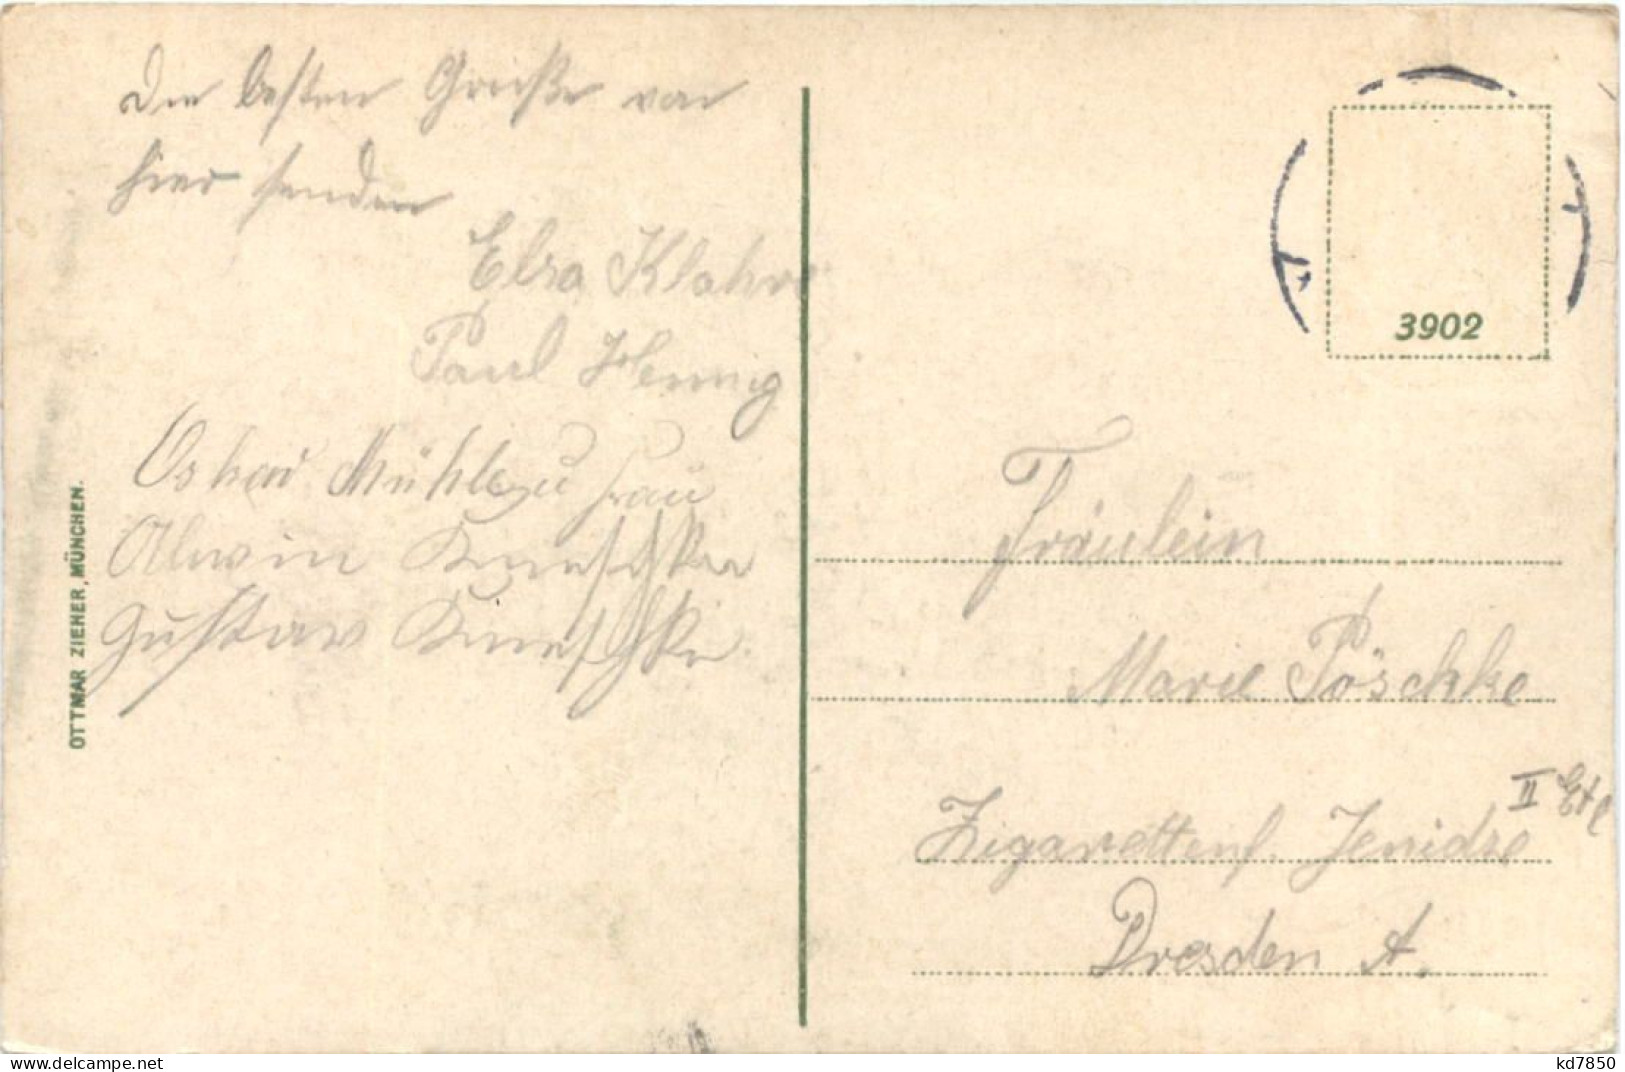 Die besten Grüße von
hier senden
Elsa Klahre
Paul Hennig
Oskar Mühle u Frau
Alwin
Gustav
OTTMAR ZIEHER, MÜNCHEN.
3902
Fräulein
Marie Pöschke
Zigarettenf. Jenidze
II Etl
Dresden A.
www.delcampe.net
kd7850